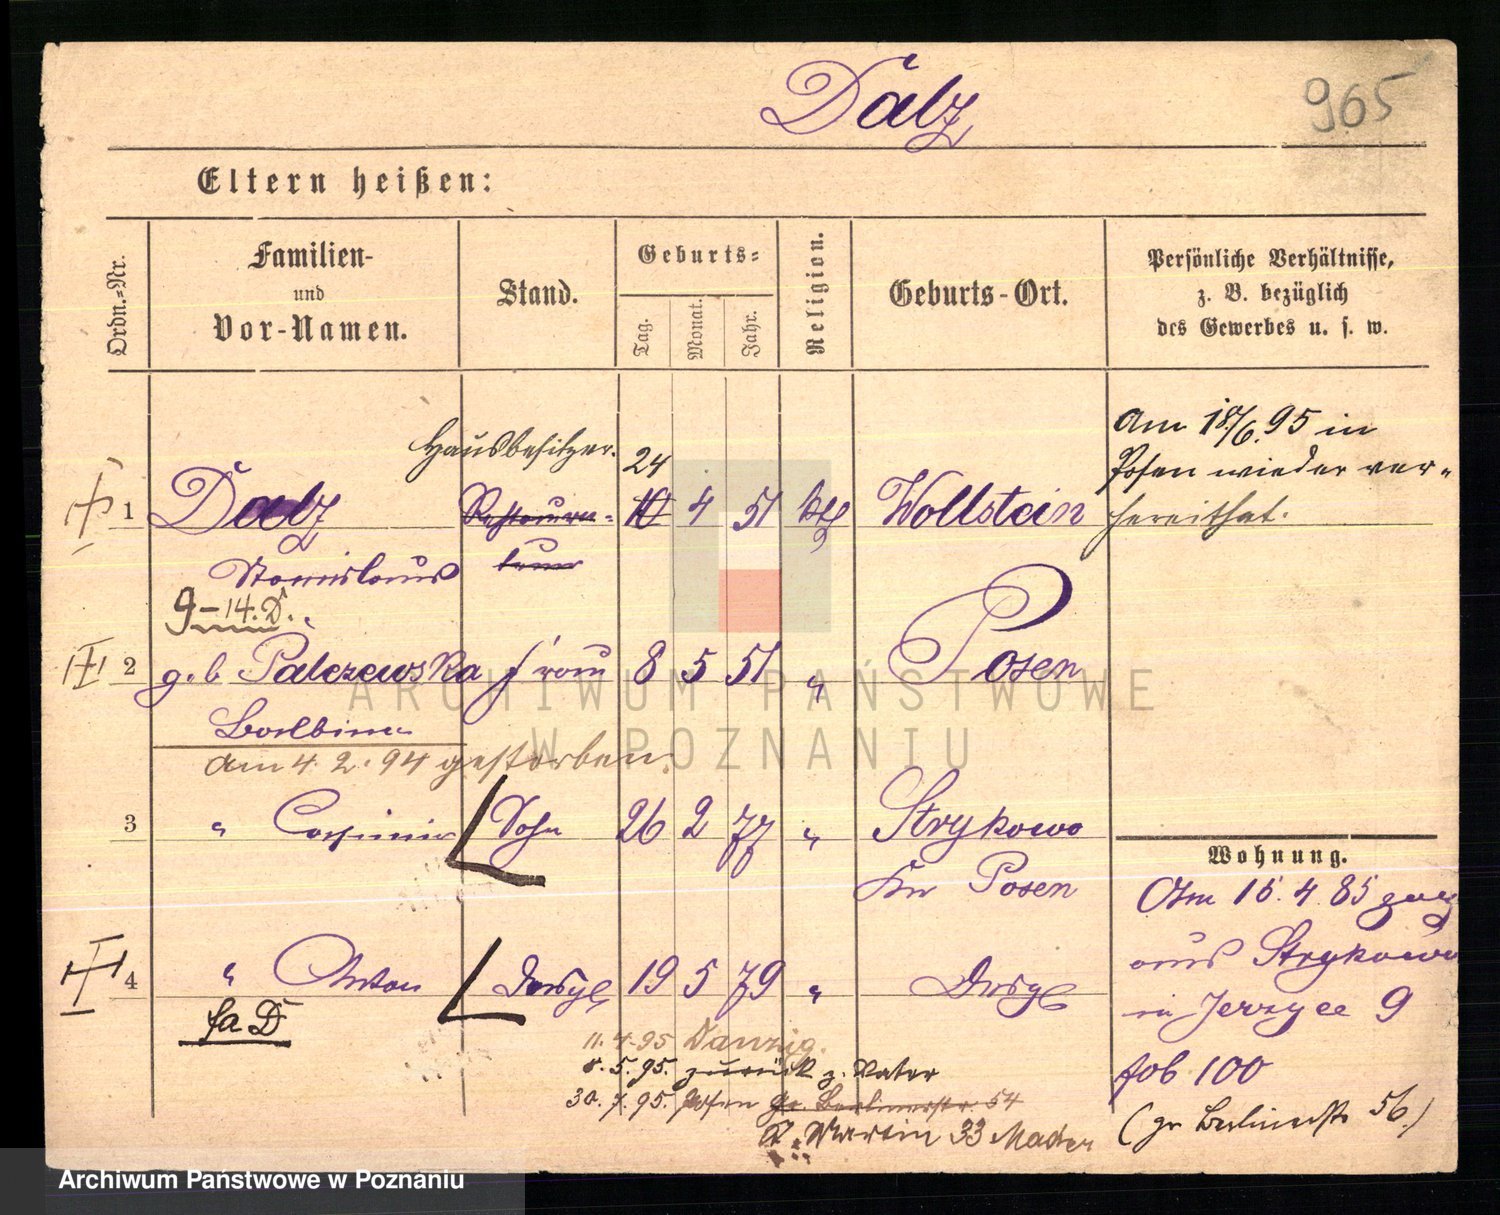 Dalz
965
Eltern heißen:
Ordn.-Nr.
Familien-
und
Vor-Namen.
Stand.
Geburts-
Tag.
Monat.
Jahr.
Religion.
Geburts-Ort.
Persönliche Verhältnisse,
z. B. bezüglich
des Gewerbes u. s. w.
1 Dalz Hausbesitzer. 24 4 51 kth Wollstein
Restaurateur
Stanislaus
9-14. D.
Am 18/6.95 in
Posen wieder ver-
heirathet.
2 geb Palczewska Frau 8 5 51 " Posen
Balbina
am 4.2.94 gestorben.
3 " Casimir Sohn 26 2 77 " Strykowo
Kr Posen
4 " Anton 19 5 79 "
fa D
11.4.95 Danzig.
8.5.95. zurück z. Vater
30.7.95. Posen Gr. Berlinerstr. 54
St. Martin 33
Wohnung.
Am 15.4.85 zug
aus Strykowo
in Jerzyce 9
fob 100
(gr Berlinerstr 56.)
ARCHIWUM PAŃSTWOWE
W POZNANIU
Archiwum Państwowe w Poznaniu